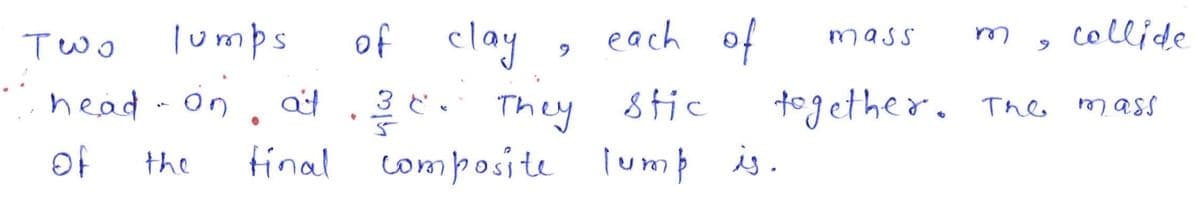 Two lumps of clay, each of mass m, collide
head-on at 3/5 c. They stic together. The mass
of the final composite lump is.